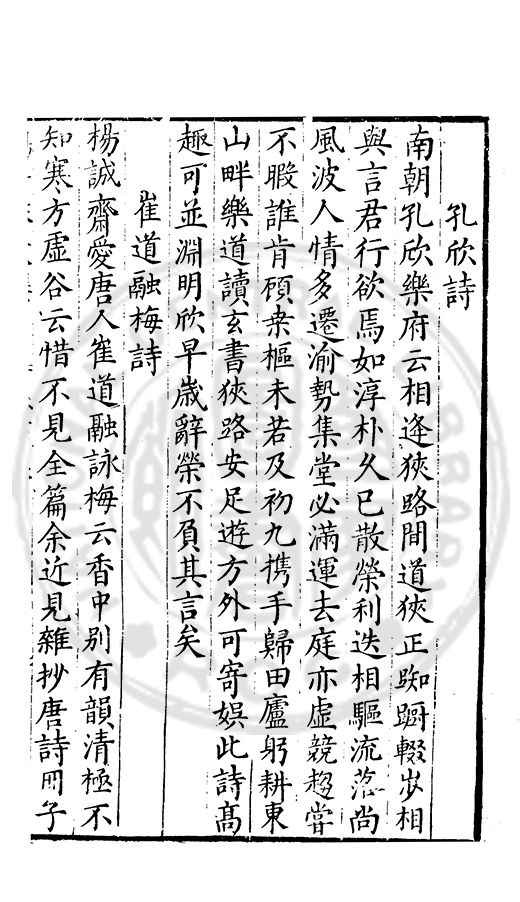 孔欣詩
南朝孔欣樂府云相逢狹路間道狹正踟蹰輟步相
與言君行欲焉如淳朴久已散榮利迭相驅流落尚
風波人情多遷渝勢集堂必滿運去庭亦虛競趨嘗
不暇誰肯顧桑樞未若及初九携手歸田廬躬耕東
山畔樂道讀玄書狹路安足遊方外可寄娛此詩高
趣可並淵明欣早歲辭榮不負其言矣
崔道融梅詩
楊誠齋愛唐人崔道融詠梅云香中別有韻清極不
知寒方虛谷云惜不見全篇余近見雜抄唐詩冊子